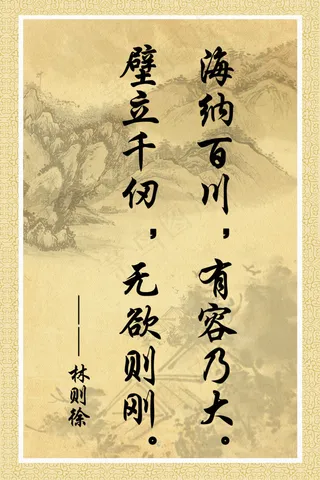 海纳百川，有容乃大。
壁立千仞，无欲则刚。
——林则徐